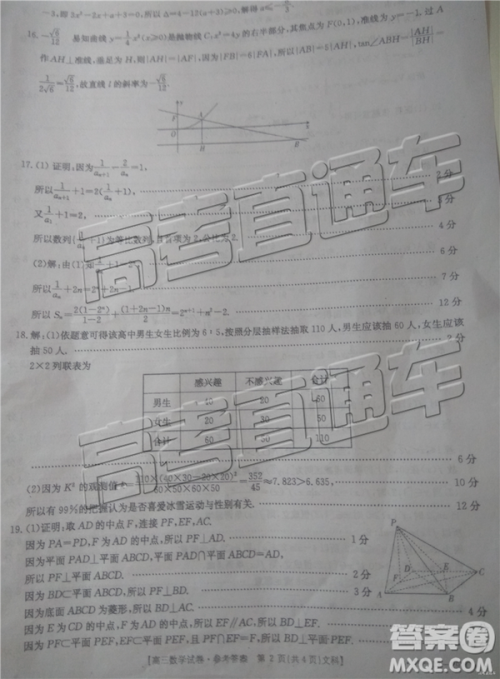 -3,即 3x²-2x+a+3=0,所以 Δ=4-12(a+3)≥0,解得 a≤-
16. -√6/12 易知曲线 y=1/4 x²(x≥0)是抛物线 C:x²=4y 的右半部分,其焦点为 F(0,1),准线为 y=-1,过 A
作 AH⊥准线,垂足为 H,则|AH|=|AF|,因为|FB|=5|FA|,所以|AB|=|AH|,tan∠ABH=|AH|/|BH|=
1/2√6=√6/12,故直线 l 的斜率为-√6/12.
y
F
A
O
x
H
B
17.(1)证明:因为1/aₙ₊₁-2/aₙ=1,
所以1/aₙ₊₁+1=2(1/aₙ+1), 2 分
又1/a₁+1=2, 3 分
所以数列{1/aₙ+1}为等比数列,且首项为2,公比为2. 4 分
(2)解:由(1) 6 分
所以1/aₙ+2n= 7 分
所以 Sₙ=2(1-2ⁿ)/1-2+(1+2n-1)n/2=2ⁿ⁺¹+n²-2. 12 分
18.解:(1)依题意可得该高中男生女生比例为 6∶5,按照分层抽样法抽取 110 人,男生应抽 60 人,女生应
抽 50 人. 2 分
2×2 列联表为
感兴趣 不感兴趣 合计
男生 40 20 60
女生 20 30 50
合计 60 50 110
6 分
(2)因为 K² 的观测值 k=110×(40×30-20×20)²/60×50×60×50=352/45≈7.823>6.635, 10 分
所以有 99%的把握认为是否喜爱冰雪运动与性别有关. 12 分
19.(1)证明:取 AD 的中点 F,连接 PF,EF,AC.
因为 PA=PD,F 为 AD 的中点,所以 PF⊥AD. 1 分
因为平面 PAD⊥平面 ABCD,平面 PAD∩平面 ABCD=AD,
所以 PF⊥平面 ABCD. 2 分
因为 BD⊂平面 ABCD,所以 PF⊥BD. 3 分
因为底面 ABCD 为菱形,所以 BD⊥AC.
因为 E 为 CD 的中点,F 为 AD 的中点,所以 EF∥AC,所以 BD⊥EF. 4 分
因为 PF⊂平面 PEF,EF⊂平面 PEF,且 PF∩EF=F,所以 BD⊥平面
P
D
E
C
F
A
B
【高三数学试卷·参考答案 第 2 页(共 4 页)文科】
高考直通车
高考直通车
答案圈
MXQE.COM